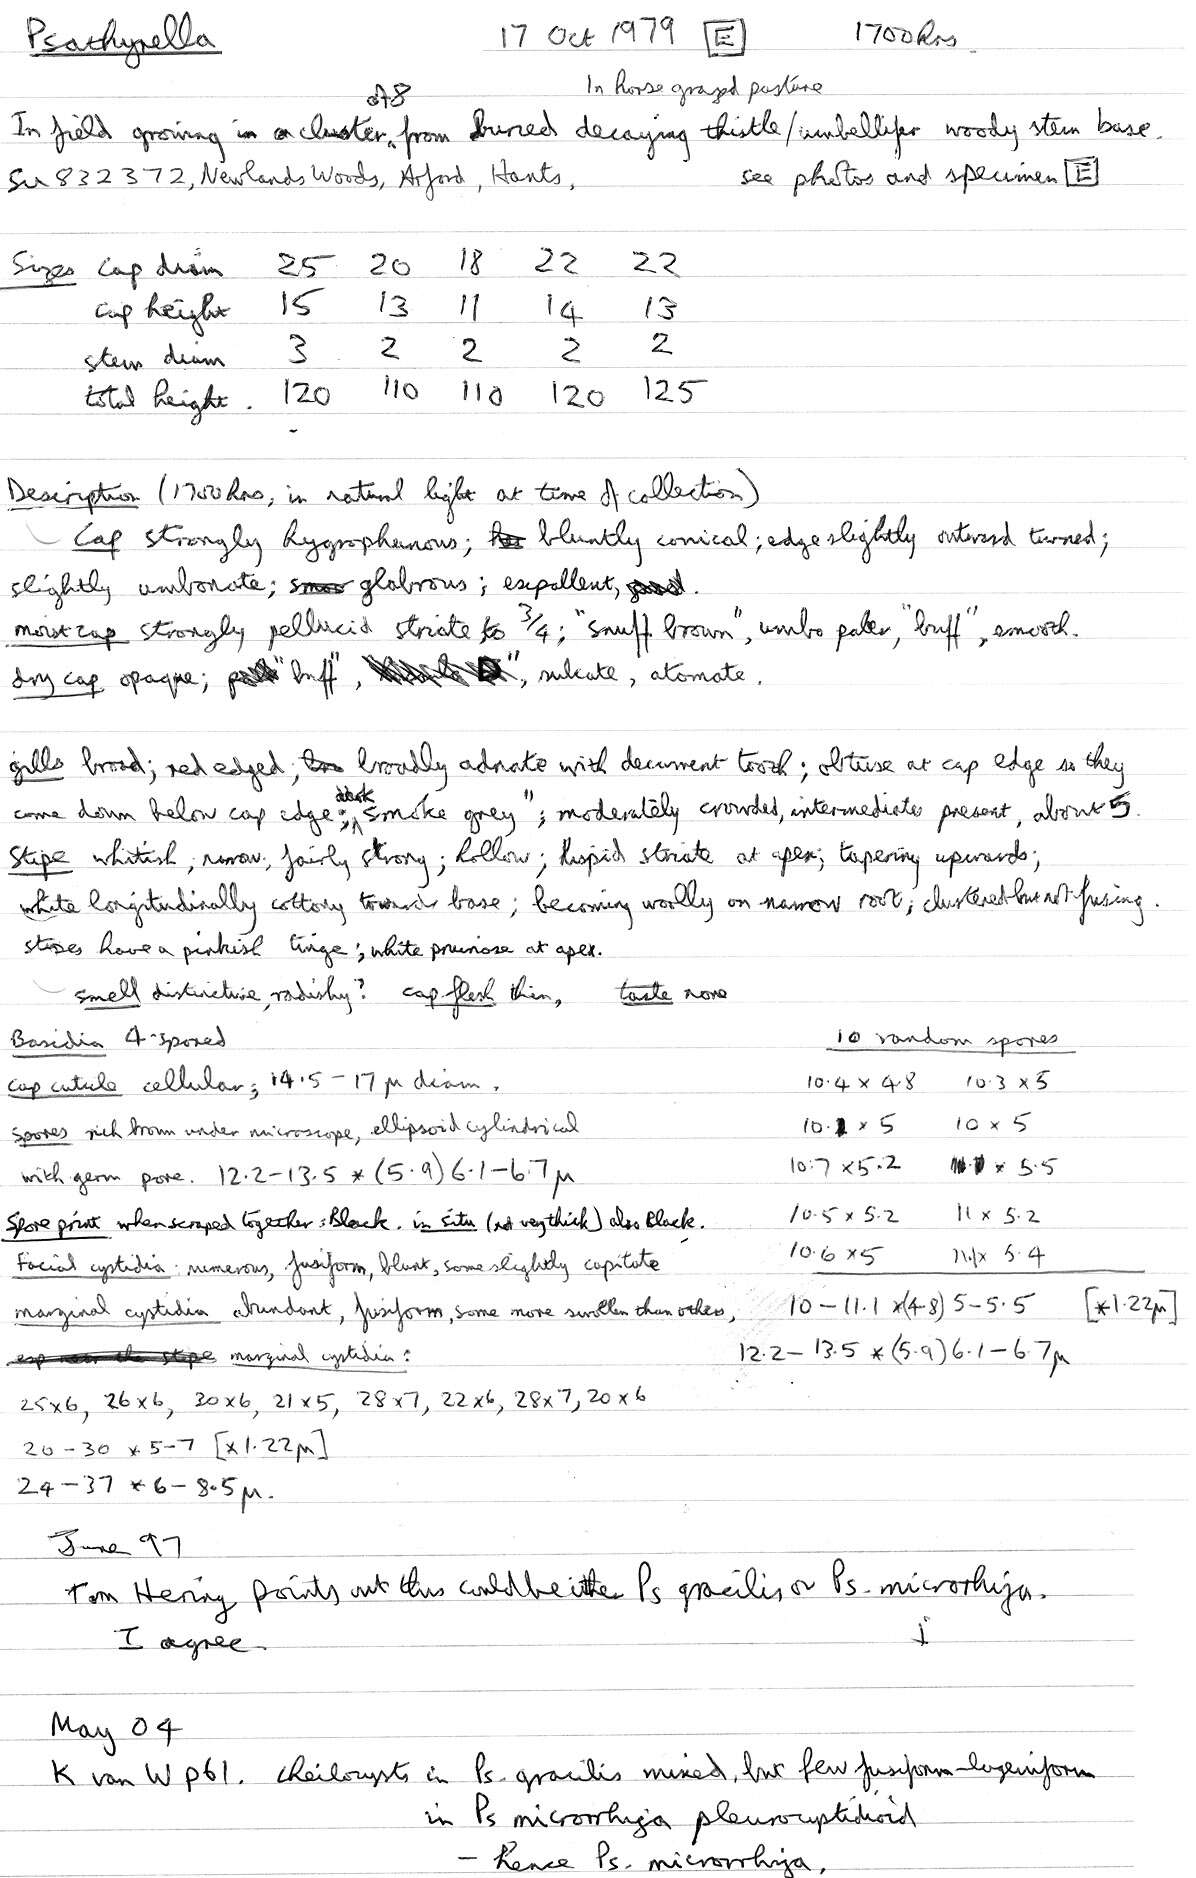 Psathyrella 17 Oct 1979 [E] 1700hrs.
In horse grazed pasture
In field growing in a cluster of 8 from buried decaying thistle/umbellifer woody stem base.
SU 832372, Newlands Woods, Arford, Hants, see photos and specimen [E]
Sizes cap diam 25 20 18 22 22
cap height 15 13 11 14 13
stem diam 3 2 2 2 2
total height. 120 110 110 120 125
Description (1700hrs, in natural light at time of collection)
Cap strongly hygrophanous; bluntly conical; edge slightly outward turned;
slightly umbonate; glabrous; expallent,
moist cap strongly pellucid striate to 3/4; "snuff brown", umbo paler, "buff", smooth.
dry cap opaque; "buff", ", sulcate, atomate.
gills broad; red edged; broadly adnate with decurrent tooth; obtuse at cap edge so they
come down below cap edge; dark "smoke grey"; moderately crowded, intermediates present, about 5.
Stipe whitish; narrow; fairly strong; hollow; hispid striate at apex; tapering upwards;
white longitudinally cottony towards base; becoming woolly on narrow root; clustered but not fusing.
stipes have a pinkish tinge; white pruinose at apex.
smell distinctive, radishy? cap flesh thin, taste none
Basidia 4-spored 10 random spores
cap cuticle cellular; 14.5-17 µ diam. 10.4 x 4.8 10.3 x 5
spores rich brown under microscope, ellipsoid cylindrical 10.1 x 5 10 x 5
with germ pore. 12.2-13.5 * (5.9) 6.1-6.7µ 10.7 x 5.2 x 5.5
Spore print when scraped together: Black. in situ (not very thick) also Black. 10.5 x 5.2 11 x 5.2
Facial cystidia: numerous, fusiform, blunt, some slightly capitate 10.6 x 5 11.1 x 5.4
marginal cystidia abundant, fusiform, some more swollen than others, 10-11.1 x (4.8) 5-5.5 [*1.22µ]
esp near the stipe marginal cystidia: 12.2-13.5 * (5.9) 6.1-6.7µ
25x6, 26x6, 30x6, 21x5, 28x7, 22x6, 28x7, 20x6
20-30 x 5-7 [x1.22µ]
24-37 * 6-8.5µ.
June 97
Tom Hering points out this could be either Ps gracilis or Ps. microrhiza.
I agree.
May 04
K van W p61. cheilocysts in Ps. gracilis mixed, but few fusiform-lageniform
in Ps microrrhiza pleurocystidioid
- hence Ps. microrrhiza,